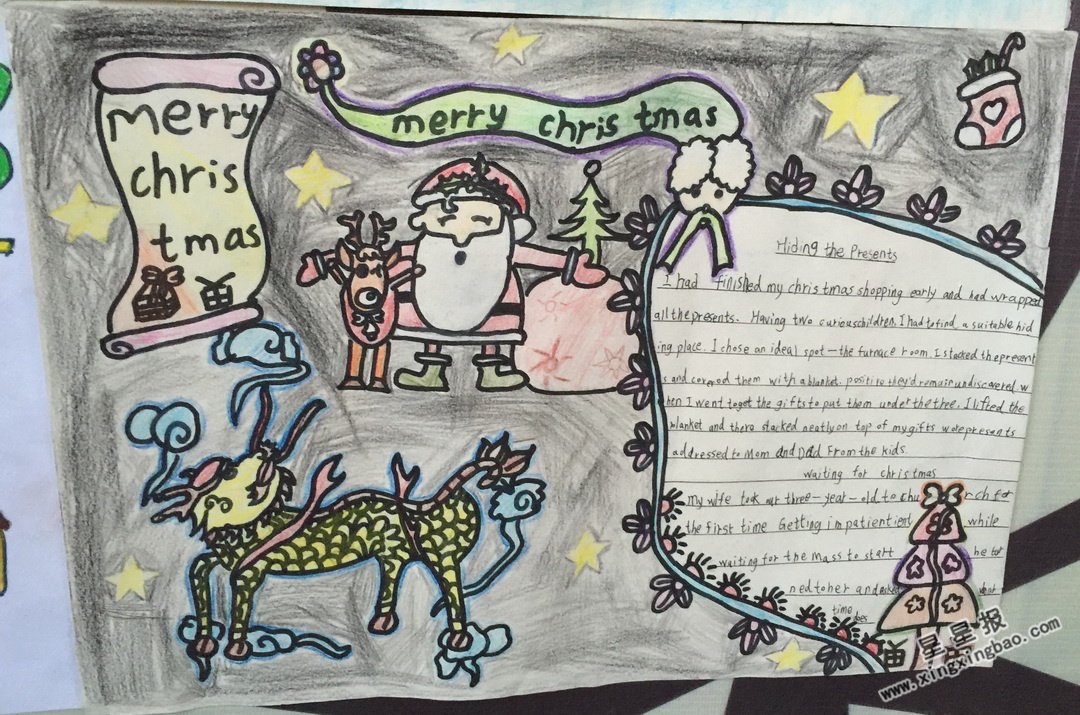 merry
chris
tmas
merry chris tmas
Hiding the Presents
I had finished my christmas shopping early and had wrapped
all the presents. Having two curiouschildren, I had to find a suitable hid
ing place. I chose an ideal spot—the furnace room. I stacked the present
s and covered them with a blanket. positive they'd remain undiscovered. w
hen I went toget the gifts to put them under the tree, I lifted the
blanket and there stacked neatly on top of my gifts were presents
addressed to Mom and Dad From the kids.
waiting for christmas
my wife took our three-year-old to chu rch for
the first time Getting impatient while
waiting for the mass to start he tur
ned to her and asked what
time
does
星星报
www.xingxingbao.com